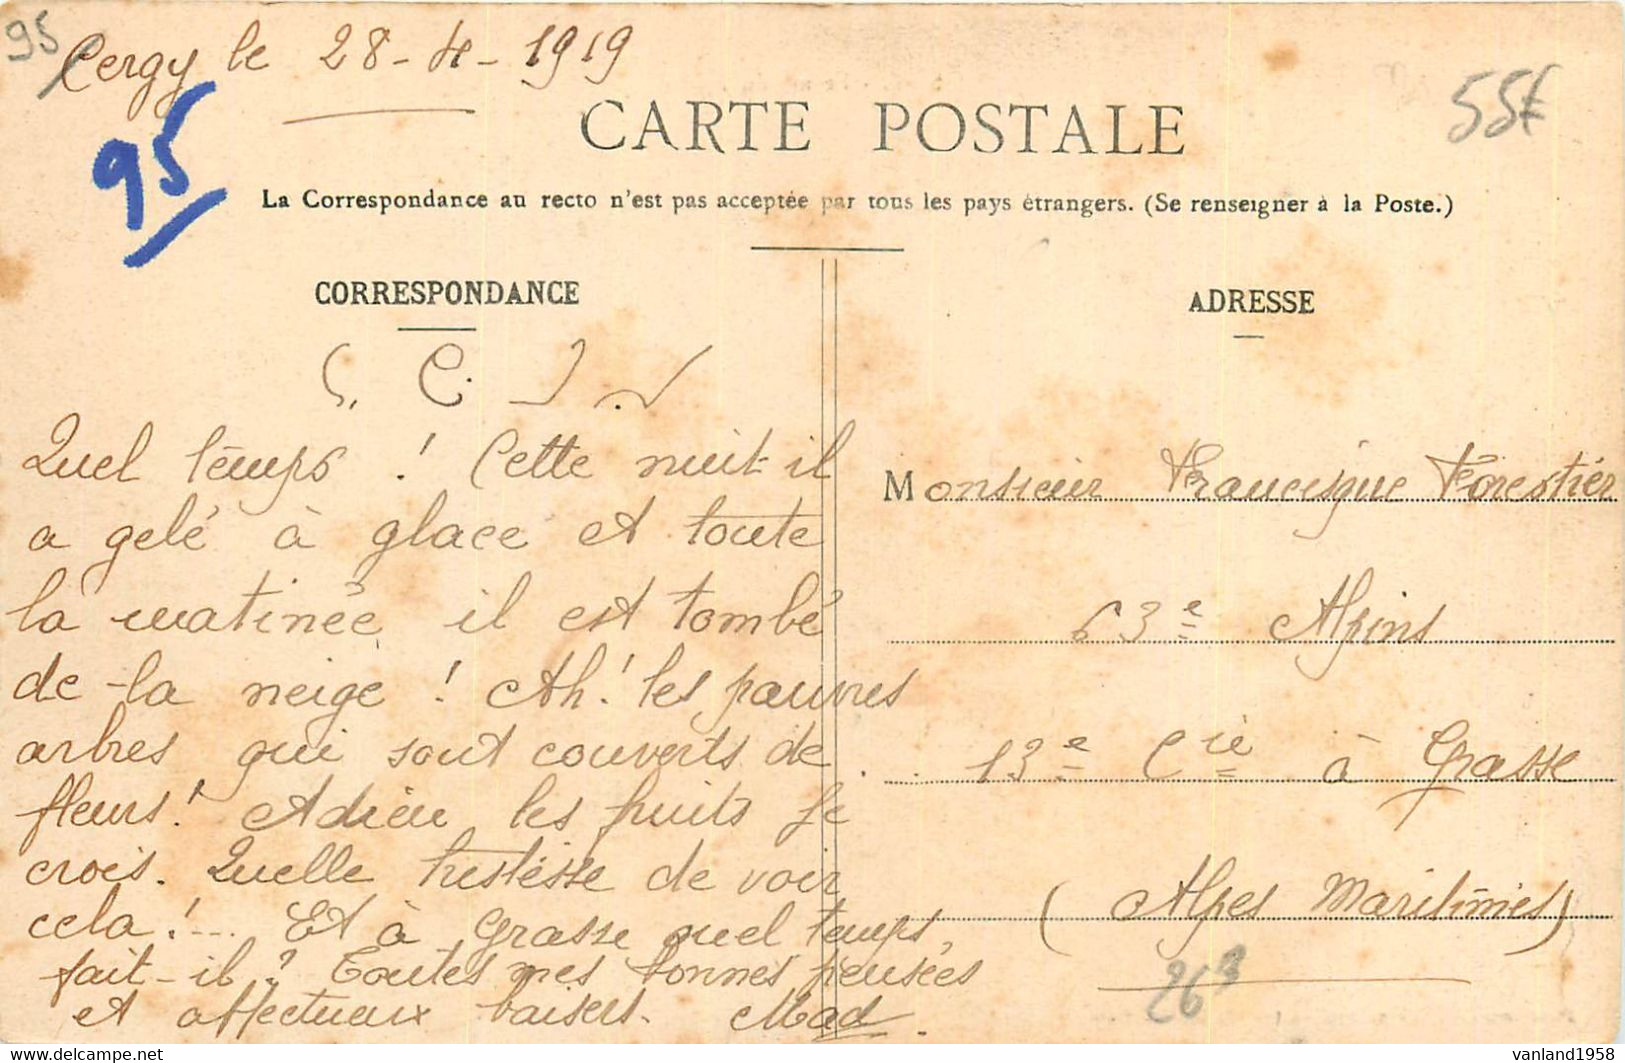 95
Cergy le 28-4-1919
95
55€
CARTE POSTALE
La Correspondance au recto n'est pas acceptée par tous les pays étrangers. (Se renseigner à la Poste.)
CORRESPONDANCE
Quel temps ! Cette nuit il
a gelé à glace et toute
la matinée il est tombé
de la neige ! Ah ! les pauvres
arbres qui sont couverts de
fleurs ! Adieu les fruits je
crois. Quelle tristesse de voir
cela !... Et à Grasse quel temps
fait-il ? Toutes mes bonnes pensées
et affectueux baisers. Mad.
ADRESSE
Monsieur Francisque Forestier
63e Alpins
13e Cie à Grasse
(Alpes Maritimes)
263
vanland1958